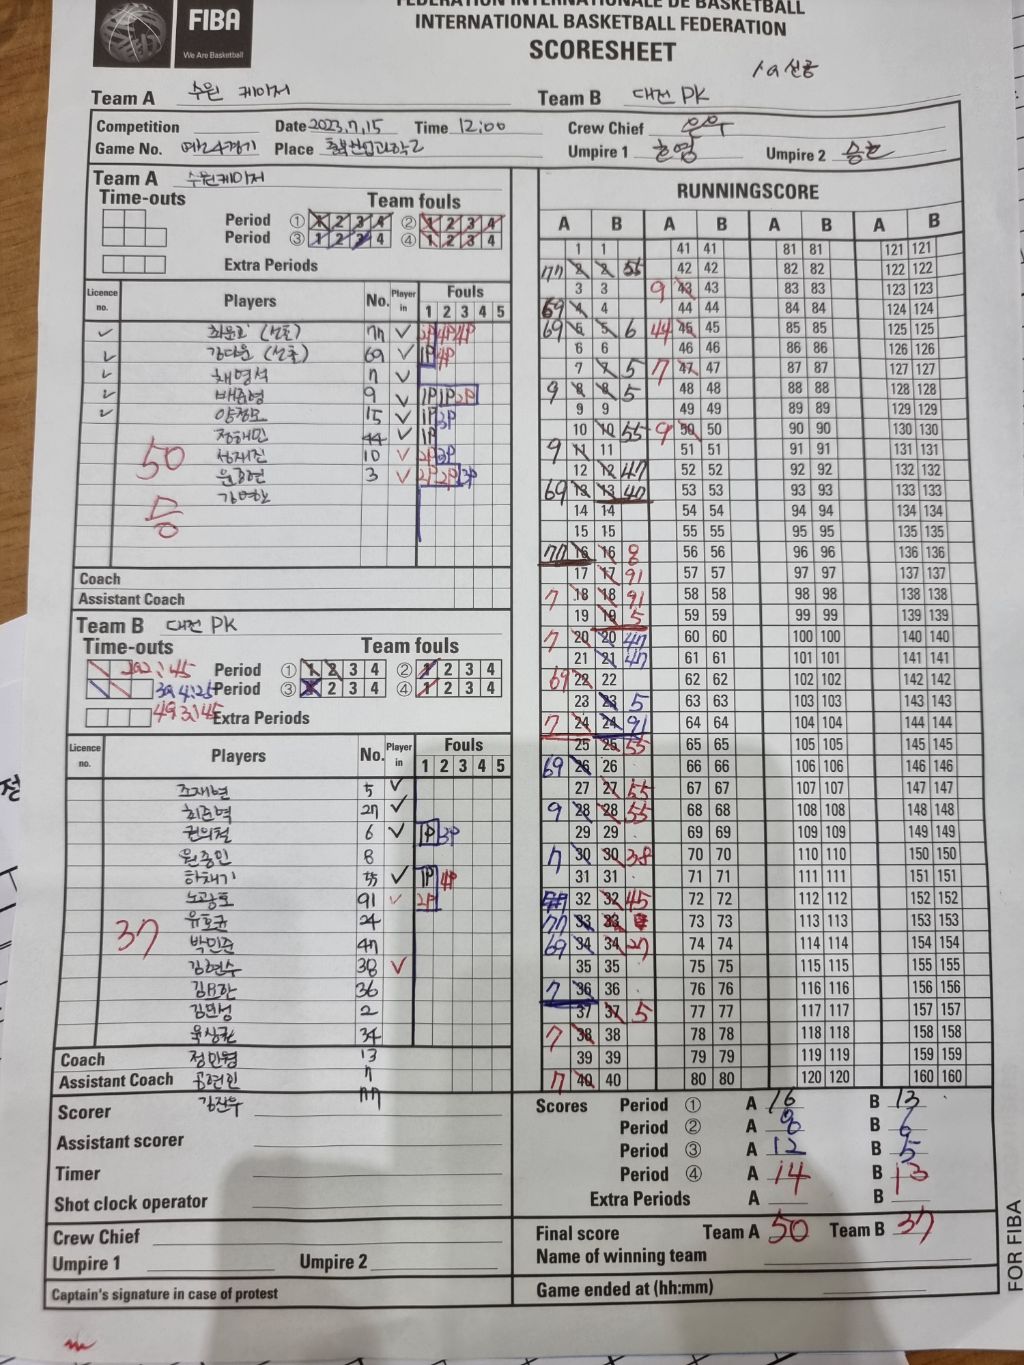 FIBA
We Are Basketball
FEDERATION INTERNATIONALE DE BASKETBALL
INTERNATIONAL BASKETBALL FEDERATION
SCORESHEET
Team A 수원 케이저 Team B 대전 PK
Competition Date 2023.7.15 Time 12:00 Crew Chief
Game No. 예선4경기 Place Umpire 1 Umpire 2
Team A 수원케이저
Time-outs Team fouls
Period ① 1 2 3 4 ② 1 2 3 4
Period ③ 1 2 3 4 ④ 1 2 3 4
Extra Periods
Licence no. Players No. Player in Fouls
1 2 3 4 5
77 3P 4P 4P
69 1P 4P
채영석 7
9 1P 1P 2P
15 1P 3P
44 1P
10 2P 3P
3 2P 2P 3P
50
Coach
Assistant Coach
Team B 대전 PK
Time-outs Team fouls
Period ① 1 2 3 4 ② 1 2 3 4
Period ③ 1 2 3 4 ④ 1 2 3 4
Extra Periods
Licence no. Players No. Player in Fouls
1 2 3 4 5
조재현 5
최준혁 27
권의철 6 1P 3P
원종민 8
하재기 55 1P 4P
노광토 91 2P
유효균 24
박민준 47
김현수 38
36
김민성 2
34
Coach 정민형 13
Assistant Coach 7
김진우 77
37
Scorer
Assistant scorer
Timer
Shot clock operator
Crew Chief
Umpire 1 Umpire 2
Captain's signature in case of protest
RUNNINGSCORE
A B A B A B A B
1 1 41 41 81 81 121 121
77 2 2 55 42 42 82 82 122 122
3 3 9 43 43 83 83 123 123
69 4 4 44 44 84 84 124 124
69 5 5 6 44 45 45 85 85 125 125
6 6 46 46 86 86 126 126
7 7 5 7 47 47 87 87 127 127
9 8 8 5 48 48 88 88 128 128
9 9 49 49 89 89 129 129
10 10 55 9 50 50 90 90 130 130
9 11 11 51 51 91 91 131 131
12 12 47 52 52 92 92 132 132
69 13 13 47 53 53 93 93 133 133
14 14 54 54 94 94 134 134
15 15 55 55 95 95 135 135
77 16 16 8 56 56 96 96 136 136
17 17 91 57 57 97 97 137 137
7 18 18 91 58 58 98 98 138 138
19 19 5 59 59 99 99 139 139
7 20 20 47 60 60 100 100 140 140
21 21 47 61 61 101 101 141 141
69 22 22 62 62 102 102 142 142
23 23 5 63 63 103 103 143 143
7 24 24 91 64 64 104 104 144 144
25 25 55 65 65 105 105 145 145
69 26 26 66 66 106 106 146 146
27 27 55 67 67 107 107 147 147
9 28 28 55 68 68 108 108 148 148
29 29 69 69 109 109 149 149
7 30 30 38 70 70 110 110 150 150
31 31 71 71 111 111 151 151
32 32 45 72 72 112 112 152 152
77 33 33 73 73 113 113 153 153
69 34 34 27 74 74 114 114 154 154
35 35 75 75 115 115 155 155
7 36 36 76 76 116 116 156 156
37 37 5 77 77 117 117 157 157
7 38 38 78 78 118 118 158 158
39 39 79 79 119 119 159 159
7 40 40 80 80 120 120 160 160
Scores Period ① A 16 B 13
Period ② A 8 B 6
Period ③ A 12 B 5
Period ④ A 14 B 13
Extra Periods A B
Final score Team A 50 Team B 37
Name of winning team
Game ended at (hh:mm)
FOR FIBA